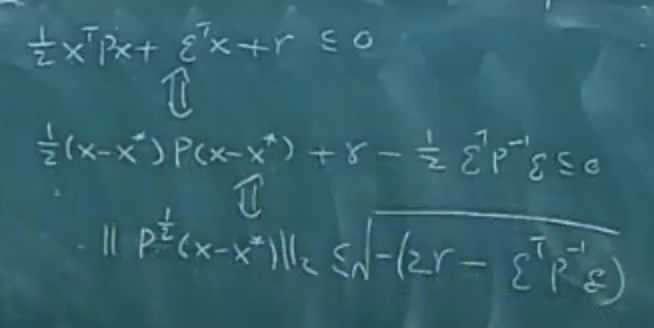 ½xᵀPx + qᵀx + r ≤ 0
⇕
½(x-x*)P(x-x*) + r - ½ qᵀP⁻¹q ≤ 0
⇕
‖P^½(x-x*)‖₂ ≤ √-(2r - qᵀP⁻¹q)